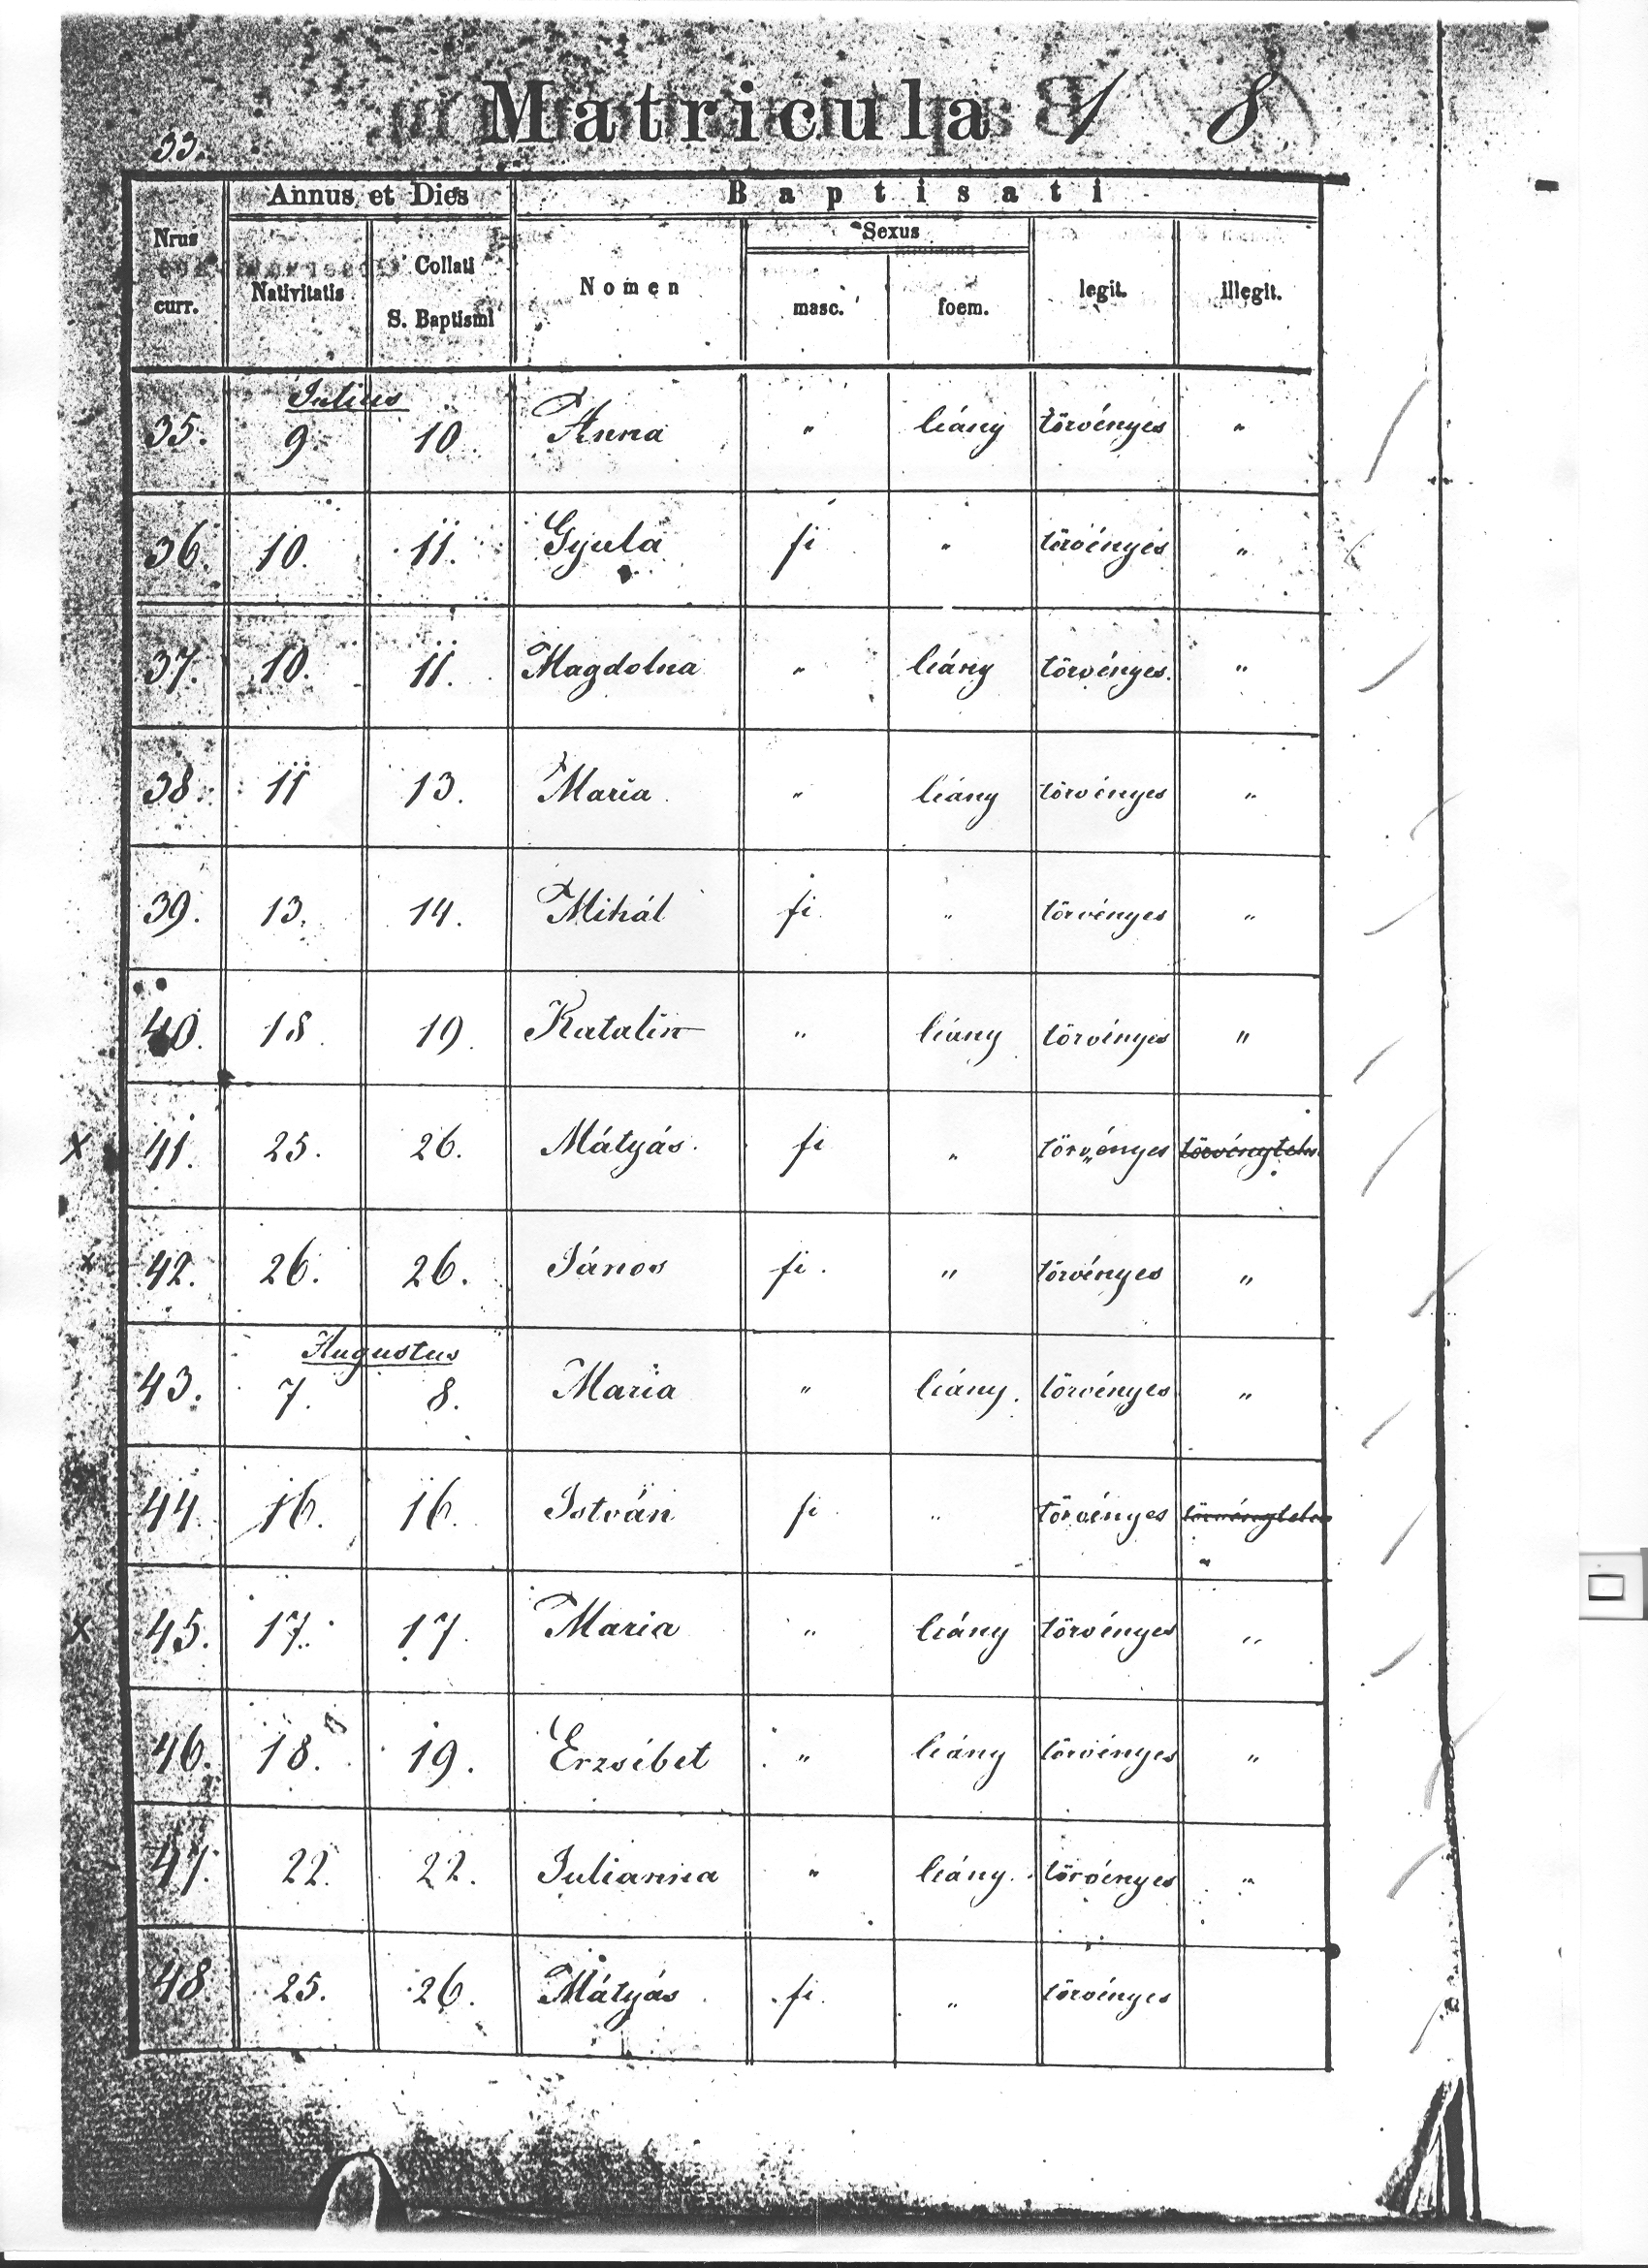 Matricula 1 8
33.
Annus et Dies Baptisati
Sexus
Nrus curr. Nativitatis Collati S. Baptismi Nomen masc. foem. legit. illegit.
Julius
35. 9 10 Anna " leány törvényes "
36. 10. 11. Gyula fi " törvényes "
37. 10. 11. Magdolna " leány törvényes. "
38. 11 13. Maria " leány törvényes "
39. 13. 14. Mihál fi " törvényes "
40. 18. 19. Katalin " leány törvényes "
x 41. 25. 26. Mátyás. fi " törvényes törvénytelen
x 42. 26. 26. János fi. " törvényes "
Augustus
43. 7. 8. Maria " leány. törvényes "
44. 16. 16. István fi " törvényes törvénytelen
x 45. 17. 17. Maria " leány törvényes "
46. 18. 19. Erzsébet " leány törvényes "
47. 22. 22. Julianna " leány. törvényes "
48. 25. 26. Mátyás fi. " törvényes